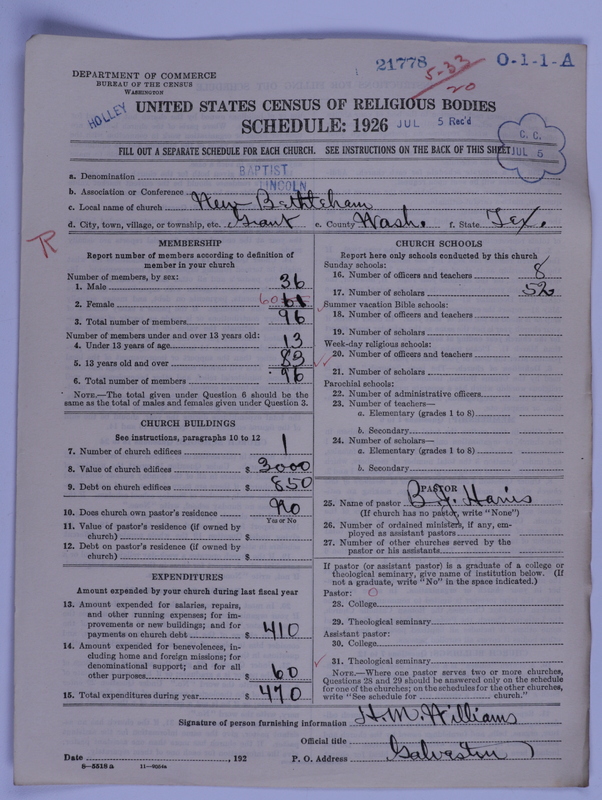 21778
O-1-1-A
5-33
20
DEPARTMENT OF COMMERCE
BUREAU OF THE CENSUS
WASHINGTON
HOLLEY
UNITED STATES CENSUS OF RELIGIOUS BODIES
SCHEDULE: 1926
JUL 5 Rec'd
C. C.
JUL 5
FILL OUT A SEPARATE SCHEDULE FOR EACH CHURCH. SEE INSTRUCTIONS ON THE BACK OF THIS SHEET
a. Denomination BAPTIST
b. Association or Conference LINCOLN
c. Local name of church New Bethleham
d. City, town, village, or township, etc. Grant e. County Wash. f. State Tex.
R
MEMBERSHIP
Report number of members according to definition of
member in your church
Number of members, by sex:
1. Male 36
2. Female 60 61
3. Total number of members 96
Number of members under and over 13 years old:
4. Under 13 years of age 13
5. 13 years old and over 83
6. Total number of members 96
NOTE.—The total given under Question 6 should be the
same as the total of males and females given under Question 3.
CHURCH BUILDINGS
See instructions, paragraphs 10 to 12
7. Number of church edifices 1
8. Value of church edifices $ 3000
9. Debt on church edifices $ 850
10. Does church own pastor's residence No
Yes or No
11. Value of pastor's residence (if owned by
church) $
12. Debt on pastor's residence (if owned by
church) $
EXPENDITURES
Amount expended by your church during last fiscal year
13. Amount expended for salaries, repairs,
and other running expenses; for im-
provements or new buildings; and for
payments on church debt $ 410
14. Amount expended for benevolences, in-
cluding home and foreign missions; for
denominational support; and for all
other purposes $ 60
15. Total expenditures during year $ 470
CHURCH SCHOOLS
Report here only schools conducted by this church
Sunday schools:
16. Number of officers and teachers 8
17. Number of scholars 52
Summer vacation Bible schools:
18. Number of officers and teachers
19. Number of scholars
Week-day religious schools:
20. Number of officers and teachers
21. Number of scholars
Parochial schools:
22. Number of administrative officers
23. Number of teachers—
a. Elementary (grades 1 to 8)
b. Secondary
24. Number of scholars—
a. Elementary (grades 1 to 8)
b. Secondary
PASTOR
25. Name of pastor B. J. Harris
(If church has no pastor, write "None")
26. Number of ordained ministers, if any, em-
ployed as assistant pastors
27. Number of other churches served by the
pastor or his assistants
If pastor (or assistant pastor) is a graduate of a college or
theological seminary, give name of institution below. (If
not a graduate, write "No" in the space indicated.)
Pastor: O
28. College
29. Theological seminary
Assistant pastor:
30. College
31. Theological seminary
NOTE.—Where one pastor serves two or more churches,
Questions 28 and 29 should be answered only on the schedule
for one of the churches; on the schedules for the other churches,
write "See schedule for church."
Signature of person furnishing information H. M. Williams
Official title
Date , 192 P. O. Address Galveston
8—5518a 11—9664a